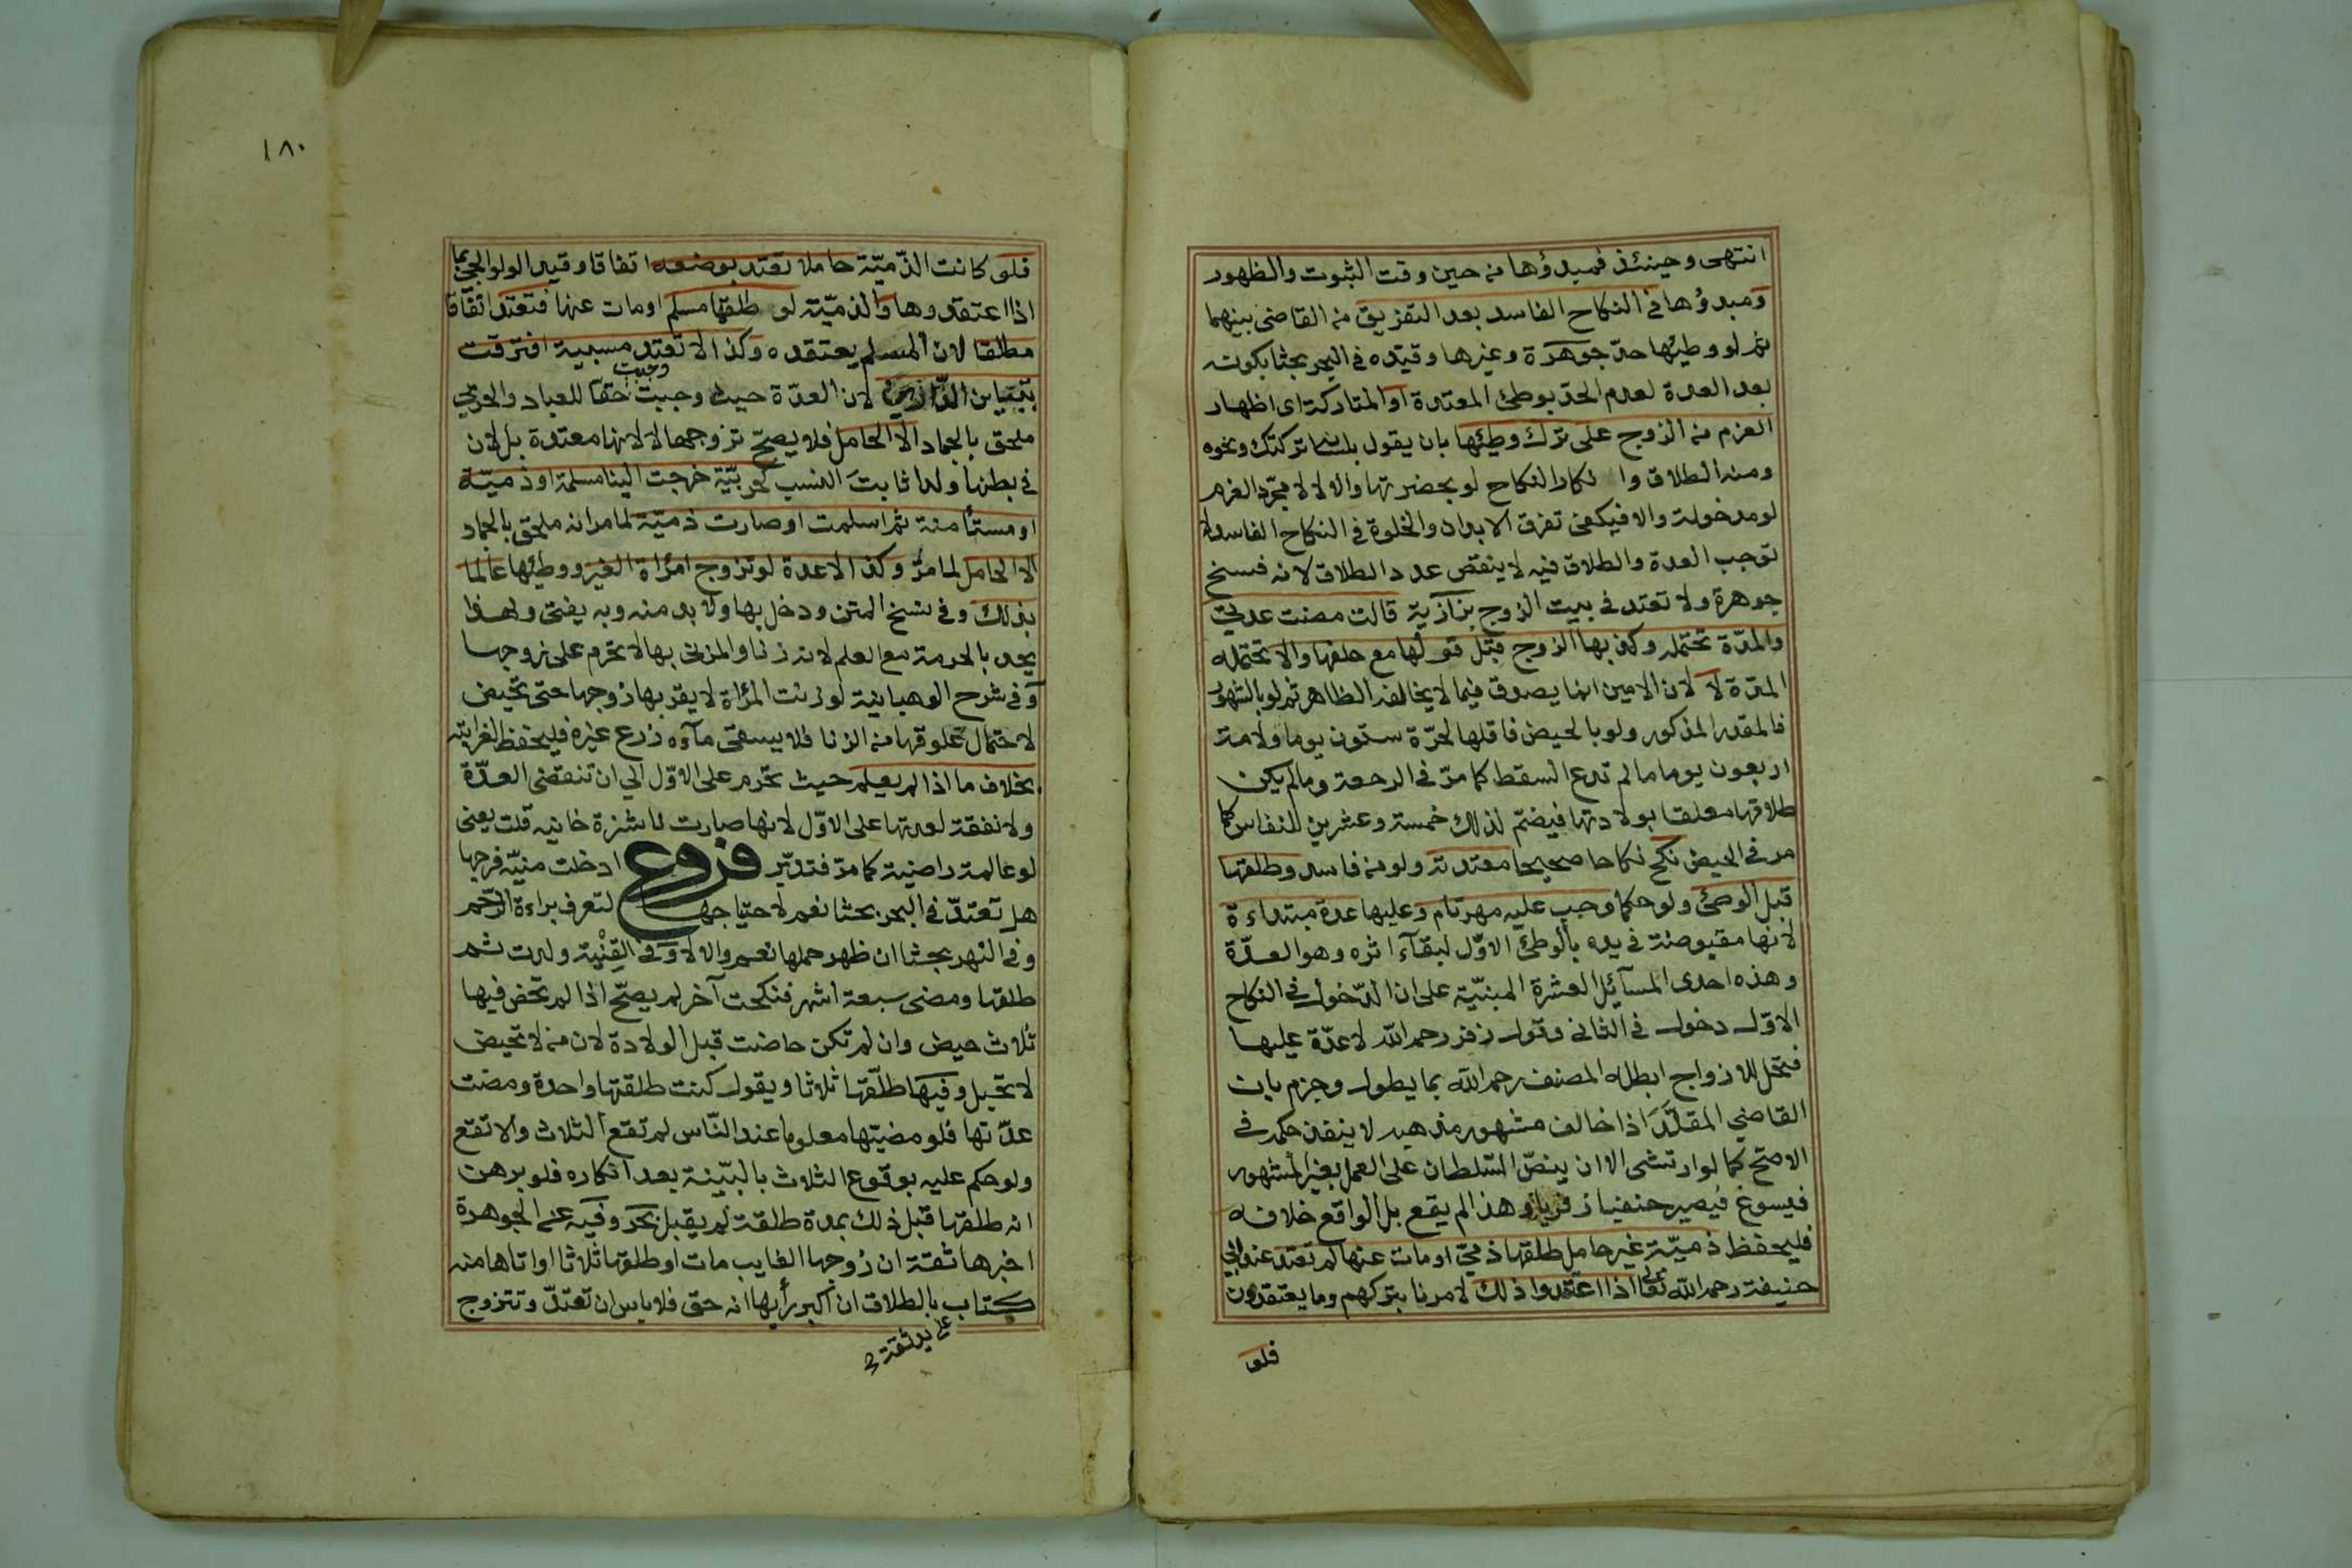 انتهى وحينئذ فمبدؤها من حين وقت الثبوت والظهور
ومبدؤها في النكاح الفاسد بعد التفريق من القاضي بينهما
ثم لو وطئها حدّ جوهرة وغيرها وقيّده في البحر بحثا بكونه
بعد العدة لعدم الحدّ بوطئ المعتدة او المتاركة اى اظهار
العزم من الزوج على ترك وطئها بان يقول بلسانه تركتك ونحوه
ومنه الطلاق وا نكار النكاح لو بحضرتها والا لا لا مجرّد العزم
لو مدخولة والا فيكفى تفرق الابدان والخلوة في النكاح الفاسد لا
توجب العدة والطلاق فيه لا ينقص عدد الطلاق لانه فسخ
جوهرة ولا تعتد في بيت الزوج بزّازية قالت مضت عدتي
والمدّة تحتمله وكذبها الزوج قبل قولها مع حلفها والا تحتمله
المدّة لا لان الامين انما يصدق فيما لا يخالفه الظاهر ثم لو بالشهور
فالمقدر المذكور ولو بالحيض فاقلها لحرّة ستون يوما ولامة
اربعون يوما ما لم تدع السقط كما مرّ في الرجعة وما لم يكن
طلاقها معلقا بولادتها فيضمّ لذلك خمسة وعشرين للنفاس كما
مر في الحيض نكح نكاحا صحيحا معتدته ولو من فاسد وطلقها
قبل الوطئ ولو حكما وجب عليه مهر تام وعليها عدة مبتداءة
لانها مقبوضة في يده بالوطئ الاوّل لبقآء اثره وهو العدّة
وهذه احدى المسآئل العشرة المبنيّة على ان الدّخول في النكاح
الاوّل دخول في الثانى وقول زفر رحمه الله لا عدّة عليها
فتحل للازواج ابطله المصنف رحمه الله بما يطول وجزم بان
القاضي المقلّد اذا خالف مشهور مذهبه لا ينفذ حكمه في
الاصحّ كما لو ارتشى الا ان ينصّ السّلطان على العمل بغير المشهور
فيسوغ فيصير حنفيا زفريا وهذا لم يقع بل الواقع خلافه
فليحفظ ذميّة غير حامل طلقها ذمّي او مات عنها لم تعتد عند ابي
حنيفة رحمه الله تعالى اذا اعتقدوا ذلك لامرنا بتركهم وما يعتقدون
فلو
١٨٠
فلو كانت الذّميّة حاملا تعتد بوضعه اتفاقا وقيد الولوالجي بما
اذا اعتقدوها والذميّة لو طلقها مسلم او مات عنها فتعتد اتفاقا
مطلقا لان المسلم يعتقده وكذا لا تعتد مسبية افترقت
بتباين الدّارين لان العدّة حيث وجبت حقا للعباد والحربي
وجبت
ملحق بالجماد الا الحامل فلا يصحّ تزوجها لا لانها معتدة بل لان
في بطنها ولدا ثابت النسب كحربيّة خرجت الينا مسلمة او ذميّة
او مستأمنة ثم اسلمت او صارت ذميّة لما مر انه ملحق بالجماد
الا الحامل لما مرّ وكذا لا عدة لو تزوج امرأة الغير ووطئها عالما
بذلك وفي نسخ المتن ودخل بها ولا بد منه وبه يفتى ولهذا
يحد بالحرمة مع العلم لانه زنا والمزنى بها لا تحرم على زوجها
وفي شرح الوهبانية لو زنت المرأة لا يقربها زوجها حتى تحيض
لاحتمال علوقها من الزنا فلا يسقى مآءه زرع غيره فليحفظ لغرابته
بخلاف ما اذا لم يعلم حيث تحرم على الاوّل الي ان تنقضى العدّة
ولا نفقة لعدتها على الاوّل لانها صارت ناشزة خانيه قلت يعنى
لو عالمة راضية كما مرّ فتدبّر فروع ادخلت منيّه فرجها
هل تعتدّ في البحر بحثا نعم لاحتياجها لتعرف براءة الرّحم
وفي النّهر بحثا ان ظهر حملها نعم والا لا وفي القنية ولدت ثم
طلقها ومضى سبعة اشهر فنكحت آخر لم يصحّ اذا لم تحض فيها
ثلاث حيض وان لم تكن حاضت قبل الولادة لان من لا تحيض
لا تحبل وفيها طلّقها ثلاثا ويقول كنت طلقتها واحدة ومضت
عدّتها فلو مضيّها معلوما عند النّاس لم تقع الثلاث والا تقع
ولو حكم عليه بوقوع الثلاث بالبيّنة بعد انكاره فلو برهن
انه طلقها قبل ذلك بمدة طلقة لم يقبل بحر وفيه عن الجوهرة
اخبرها ثقة ان زوجها الغايب مات او طلقها ثلاثا او اتاها منه
كتاب بالطلاق ان اكبر رأيها انه حق فلا باس ان تعتدّ وتتزوج
على يد ثقة